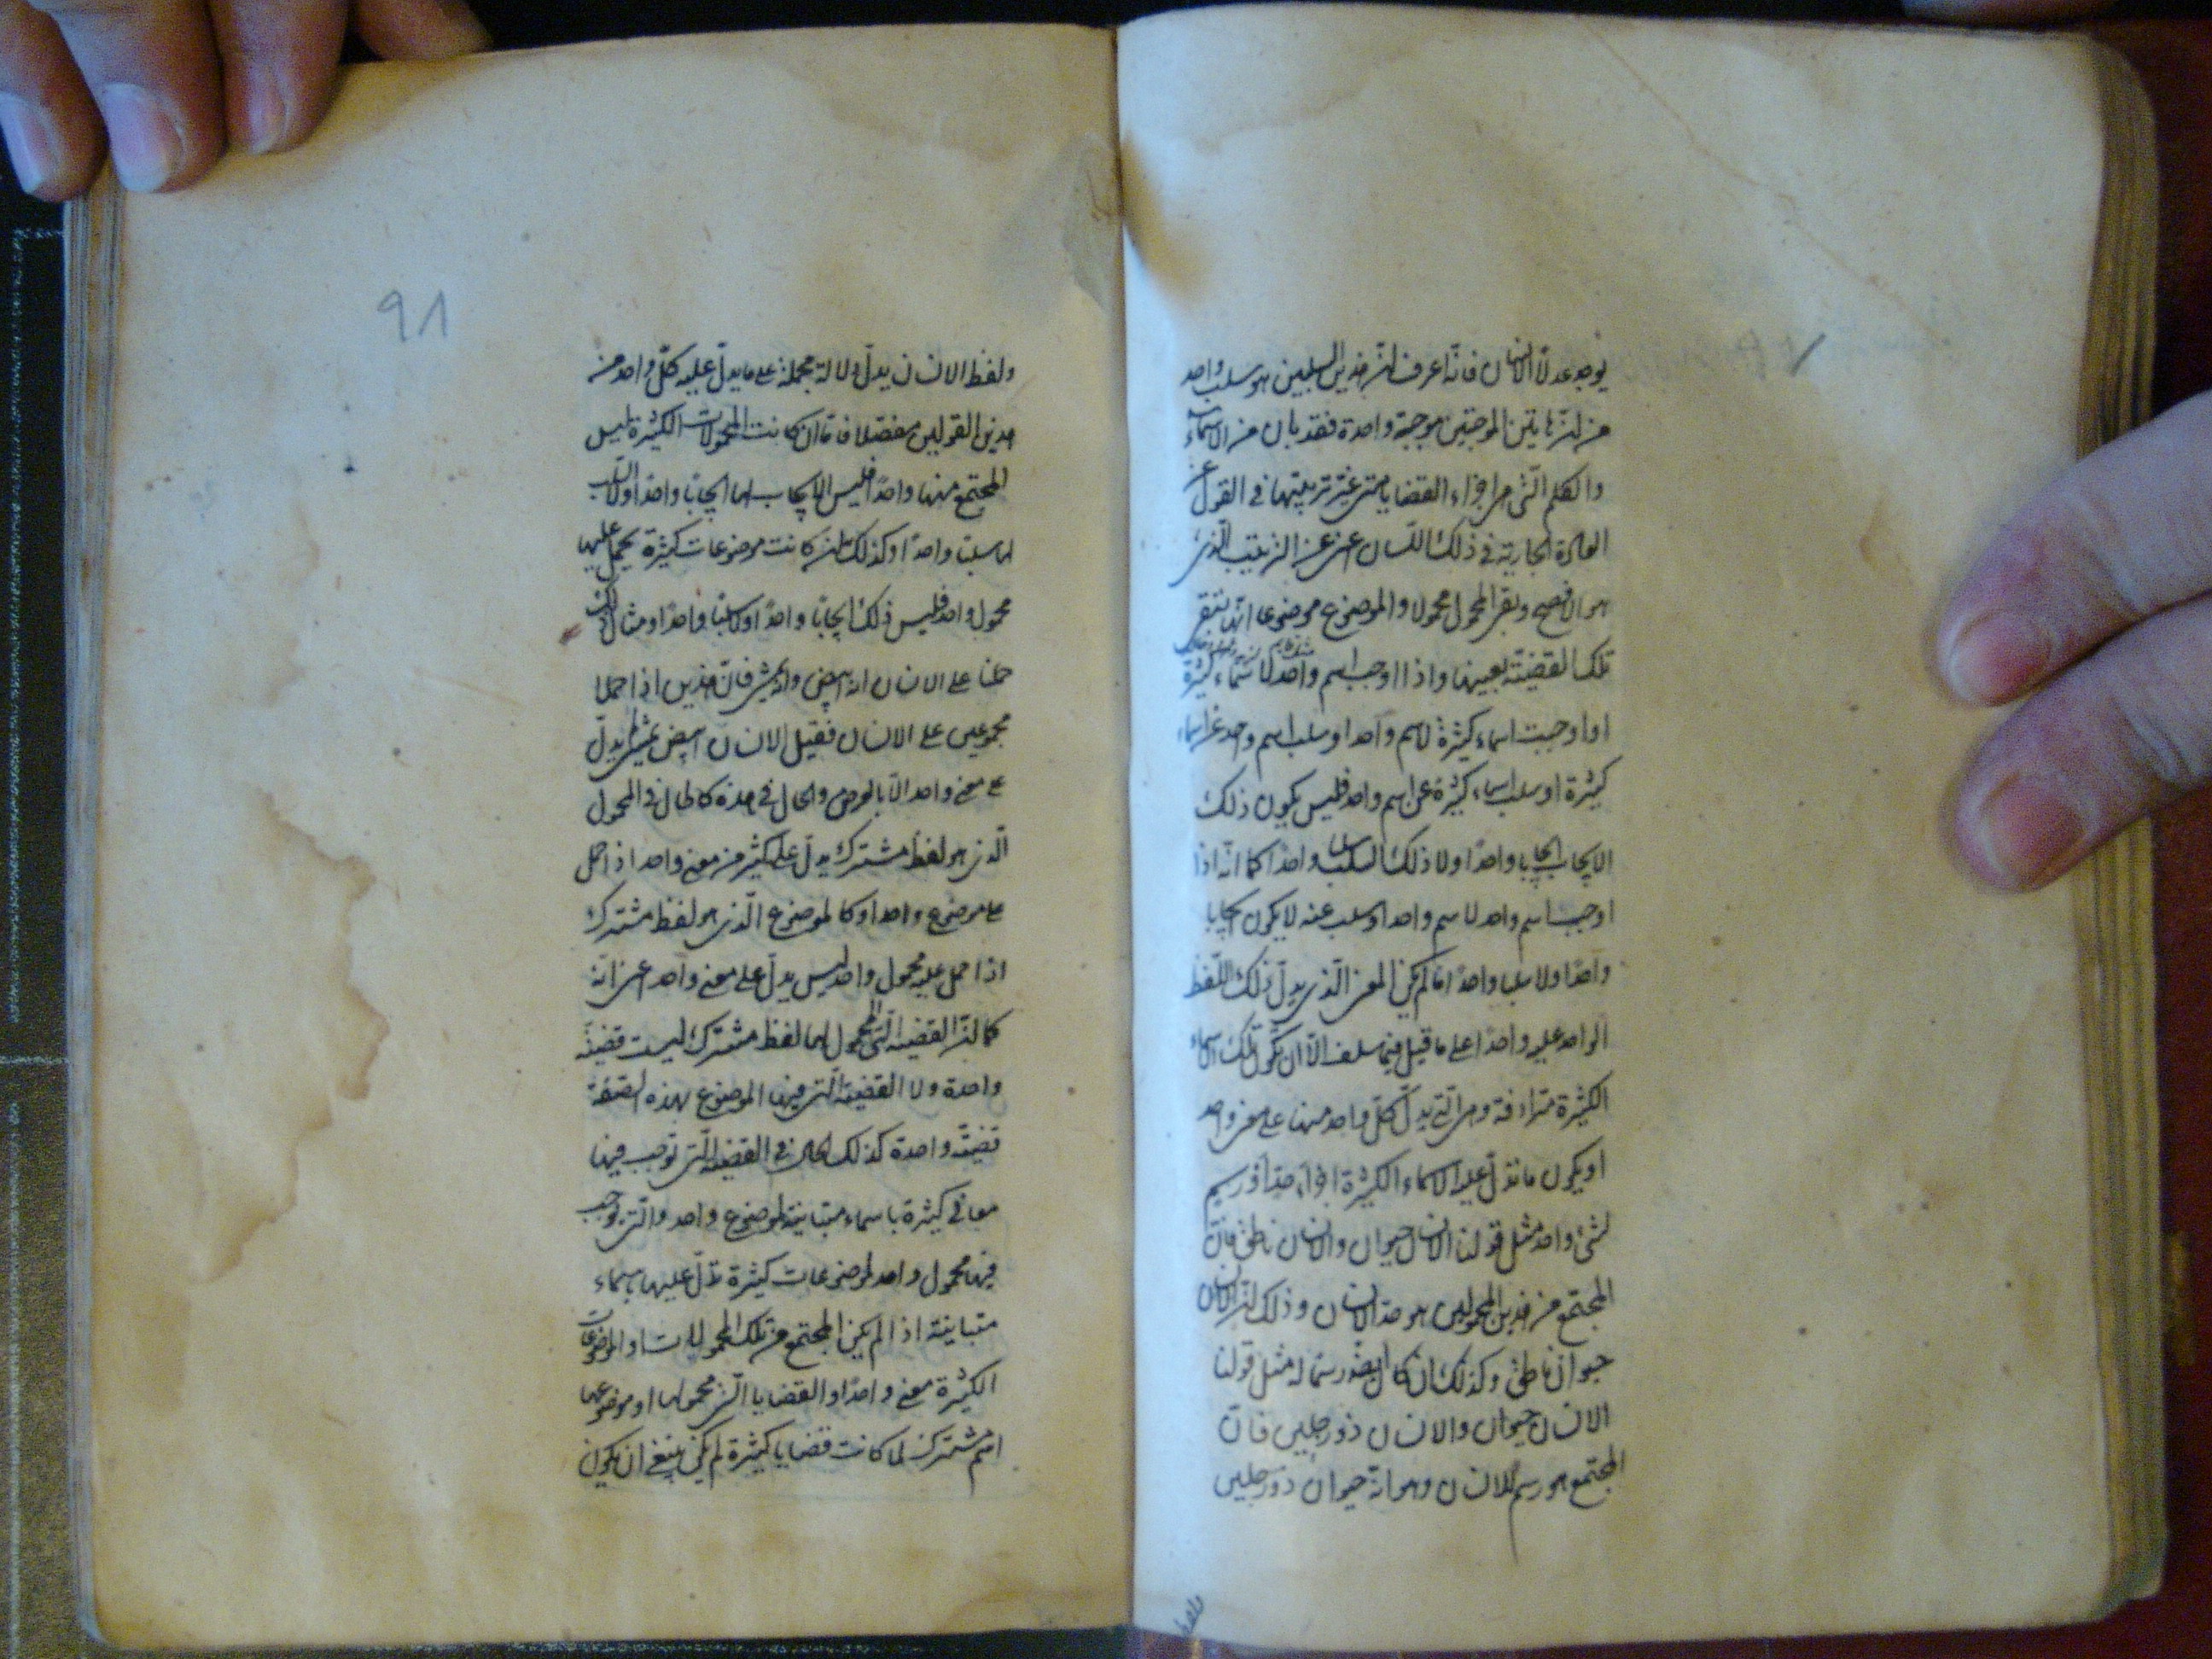 يوجد عدلا الانسان فانه اعرف ان هذين السلبين هو سلب واحد
من ان هاتين الموجبتين موجبة واحدة فقد بان من الاسماء
والكلم التى هى اجزاء القضايا متى غير ترتيبها فى القول عن
العادة الجارية فى ذلك اللسان اعنى عن الترتيب الذى
هو الافصح وبقى المحمول محمولا والموضوع موضوعا انها تبقى
تلك القضية بعينها واذا اوجب اسم واحد لاسماء كثيرة
او اوجبت اسماء كثيرة لاسم واحد او سلب اسم واحد عن اسماء
كثيرة او سلب اسماء كثيرة عن اسم واحد فليس يكون ذلك
الايجاب ايجابا واحدا ولا ذلك السلب سلبا واحدا كما انه اذا
اوجب اسم واحد لاسم واحد او سلب عنه لا يكون ايجابا
واحدا ولا سلبا واحدا ما لم يكن المعنى الذى يدل ذلك اللفظ
الواحد عليه واحدا على ما قيل فيما سلف الا ان تكون تلك الاسماء
الكثيرة مترادفة وهى التى يدل كل واحد منها على معنى واحد
او يكون ما تدل عليه الاسماء الكثيرة اجزاء حد او رسم
لشئ واحد مثل قولنا الانسان حيوان والانسان ناطق فان
المجتمع من هذين المحمولين هو حد الانسان وذلك ان الانسان
حيوان ناطق وكذلك ان كان ايضا رسما له مثل قولنا
الانسان حيوان والانسان ذو رجلين فان
المجتمع هو رسم للانسان وهو انه حيوان ذو رجلين
ولفظ
91
ولفظ الانسان يدل دلالة مجملة على ما يدل عليه كل واحد من
هذين القولين مفصلا فاما ان كانت المحمولات الكثيرة ليس
المجتمع منها واحدا فليس الايجاب لها ايجابا واحدا ولا السلب
لها سلبا واحدا وكذلك ان كانت موضوعات كثيرة يحمل عليها
محمول واحد فليس ذلك ايجابا واحدا ولا سلبا واحدا ومثال ذلك
حملنا على الانسان انه ابيض وانه يمشى فان هذين اذا حملا
مجموعين على الانسان فقيل الانسان ابيض يمشى لم يدل
على معنى واحد الا بالعرض والحال فى هذه كالحال فى المحمول
الذى هو لفظ مشترك يدل على اكثر من معنى واحد اذا حمل
على موضوع واحد او كالموضوع الذى هو لفظ مشترك
اذا حمل عليه محمول واحد ليس يدل على معنى واحد اعنى انه
كما ان القضية التى المحمول لها لفظ مشترك ليست قضية
واحدة ولا القضية التى فيها الموضوع بهذه الصفة
قضية واحدة كذلك الحال فى القضية التى توجب فيها
معانى كثيرة باسماء متباينة لموضوع واحد والتى يوجب
فيها محمول واحد لموضوعات كثيرة تدل عليها باسماء
متباينة اذا لم يكن المجتمع من تلك المحمولات او الموضوعات
الكثيرة معنى واحدا والقضايا التى محمولها او موضوعها
اسم مشترك لما كانت قضايا كثيرة لم يكن ينبغى ان يكون